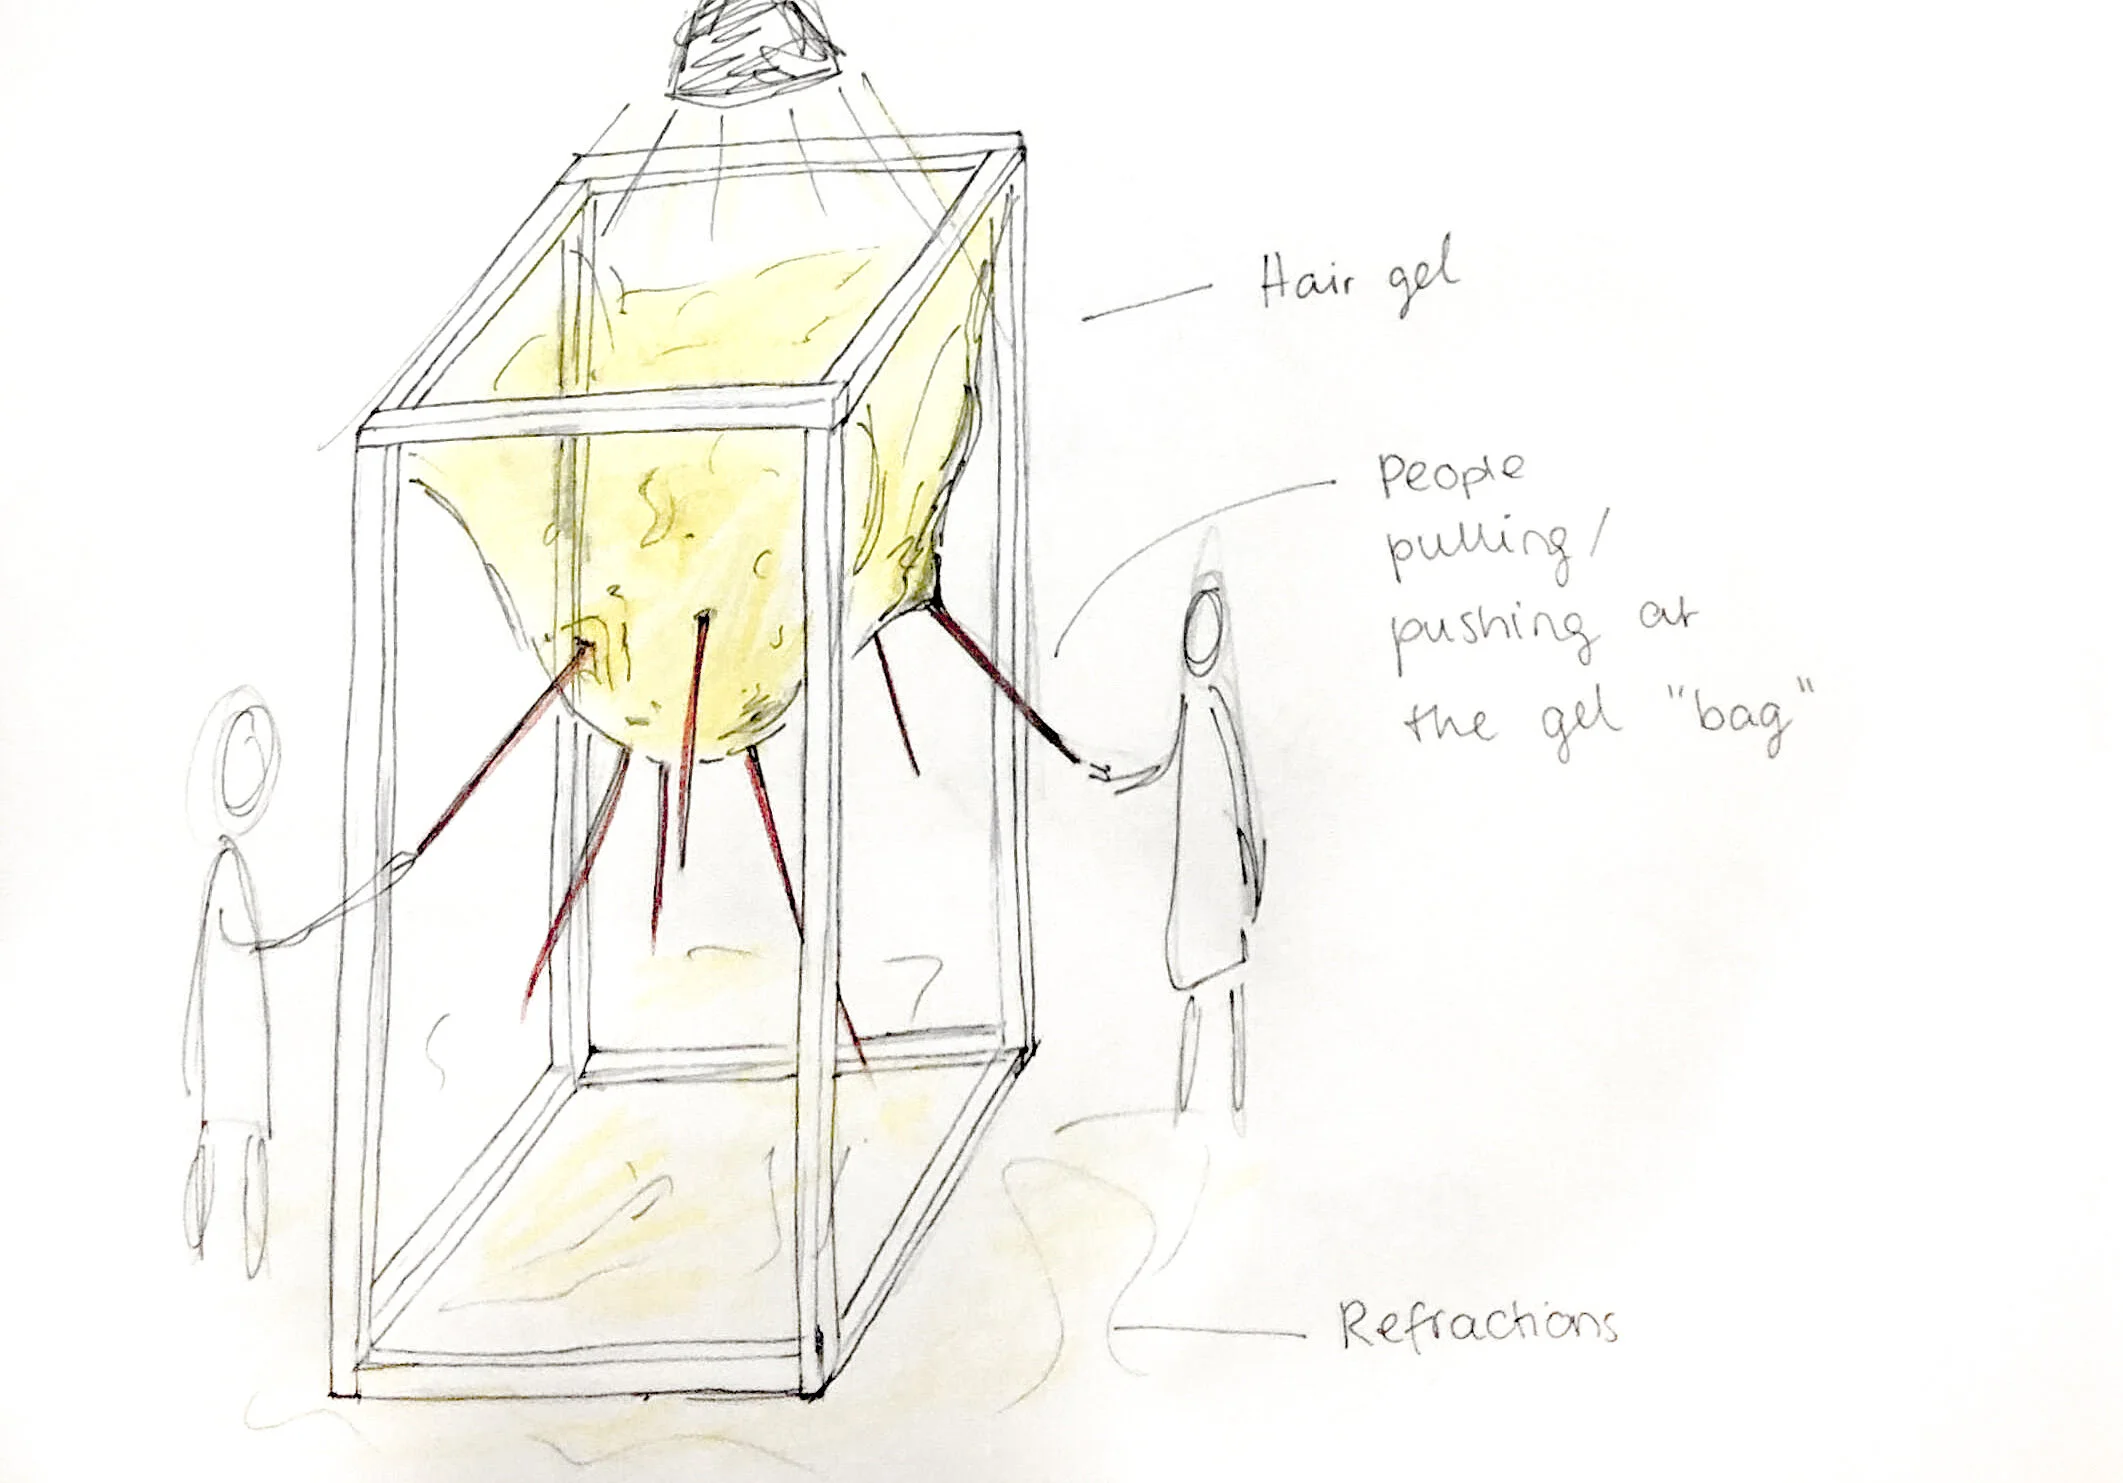 Hair gel
People
pulling/
pushing at
the gel "bag"
Refractions